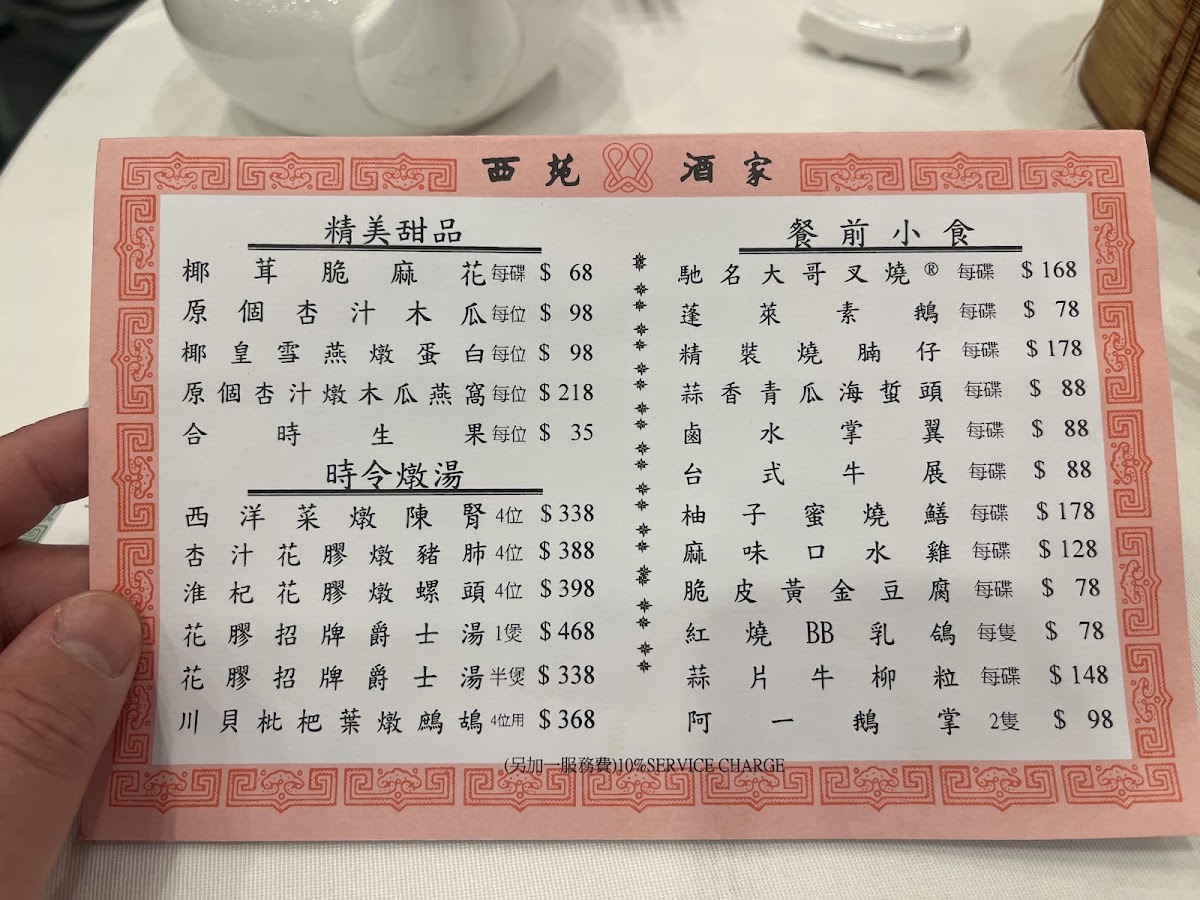 西苑酒家
精美甜品
椰茸脆麻花每碟 $ 68
原個杏汁木瓜每位 $ 98
椰皇雪燕燉蛋白每位 $ 98
原個杏汁燉木瓜燕窩每位 $ 218
合時生果每位 $ 35
時令燉湯
西洋菜燉陳腎 4位 $ 338
杏汁花膠燉豬肺 4位 $ 388
淮杞花膠燉螺頭 4位 $ 398
花膠招牌爵士湯 1煲 $ 468
花膠招牌爵士湯 半煲 $ 338
川貝枇杷葉燉鷓鴣 4位用 $ 368
餐前小食
馳名大哥叉燒® 每碟 $ 168
蓬萊素鵝 每碟 $ 78
精裝燒腩仔 每碟 $ 178
蒜香青瓜海蜇頭 每碟 $ 88
鹵水掌翼 每碟 $ 88
台式牛展 每碟 $ 88
柚子蜜燒鱔 每碟 $ 178
麻味口水雞 每碟 $ 128
脆皮黃金豆腐 每碟 $ 78
紅燒BB乳鴿 每隻 $ 78
蒜片牛柳粒 每碟 $ 148
阿一鵝掌 2隻 $ 98
(另加一服務費)10%SERVICE CHARGE